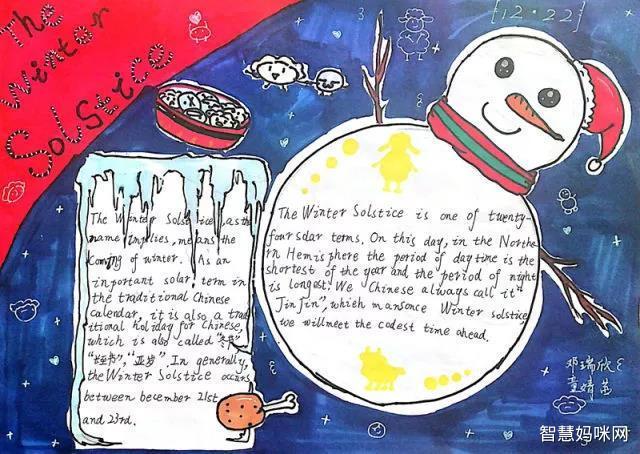 The
Winter
Solstice
[12·22]
The Winter Solstice, as the
name implies, means the
Coming of winter. As an
inportant solar term in
the traditional Chinese
calendar, it is also a trad
itional holiday for Chinese,
which is also called "冬节",
"亚岁". In generally,
the Winter Solstice occurs
between becember 21st
and 23rd.
The Winter Solstice is one of twenty-
four solar terms. On this day, in the Northe
rn Hemisphere the period of daytime is the
shortest of the year and the period of night
is longest. We Chinese always call it "
Jin Jin", which mansonce Winter solstice,
we will meet the codest time ahead.
邓瑞欣
童婧
智慧妈咪网